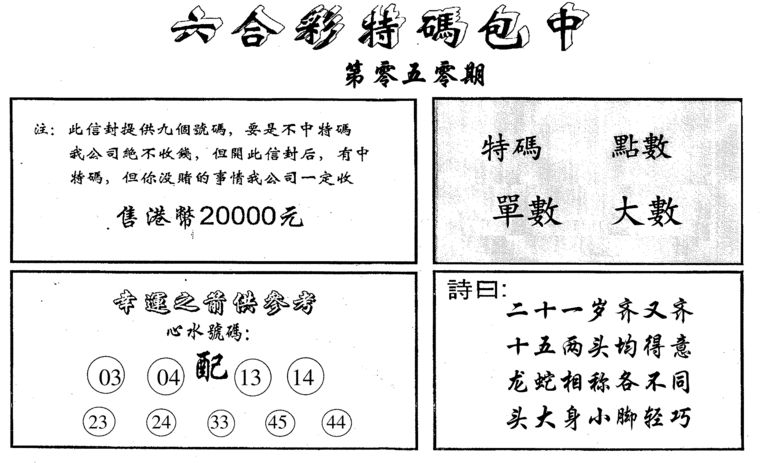 六合彩特碼包中
第零五零期
注：此信封提供九個號碼，要是不中特碼
我公司絕不收錢，但開此信封后，有中
特碼，但你没賭的事情我公司一定收
售港幣20000元
特碼 點數
單數 大數
幸運之箭供參考
心水號碼：
03 04 配 13 14
23 24 33 45 44
詩曰：
二十一岁齐又齐
十五两头均得意
龙蛇相称各不同
头大身小脚轻巧